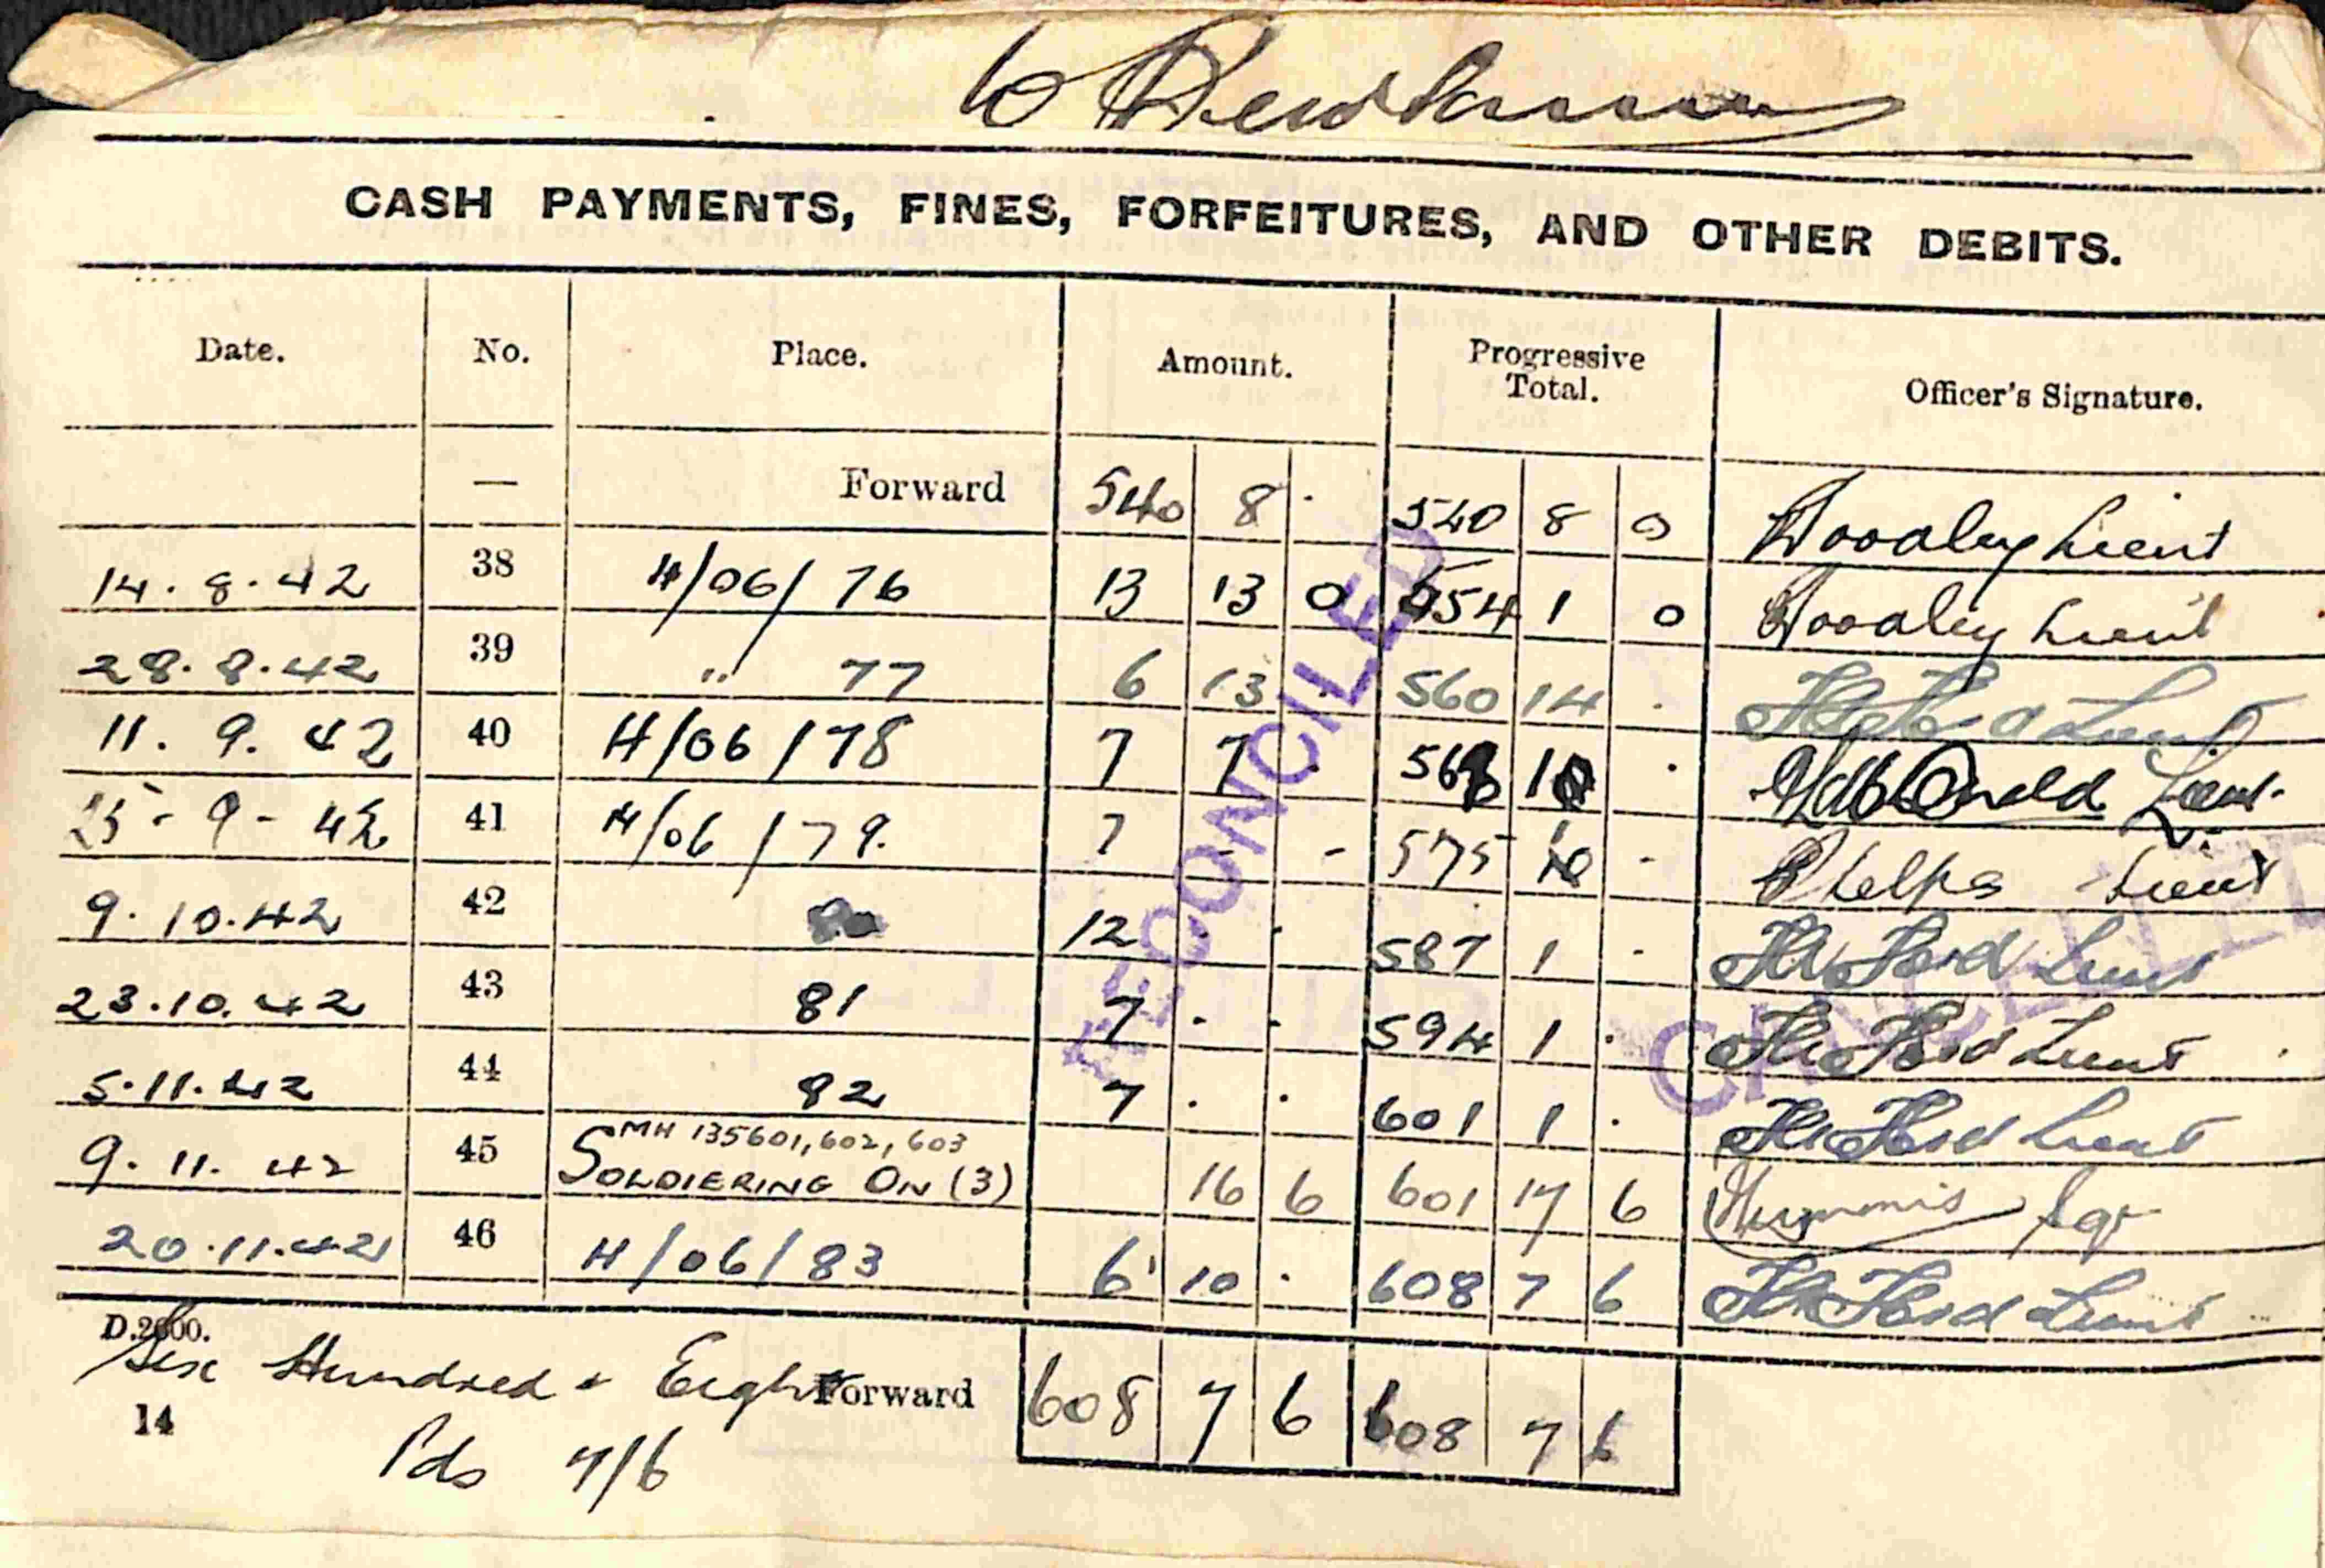 CASH PAYMENTS, FINES, FORFEITURES, AND OTHER DEBITS.
Date. No. Place. Amount. Progressive Total. Officer's Signature.
— Forward 540 8 · 540 8 0 Lieut
14.8.42 38 H/06/76 13 13 0 554 1 0 Lieut
28.8.42 39 " 77 6 13 · 560 14 · Lieut
11.9.42 40 H/06/78 7 7 · 568 1 · Lieut.
25-9-42 41 H/06/79. 7 - - 575 1 - Phelps Lieut
9.10.42 42 80 12 · · 587 1 - Lieut
23.10.42 43 81 7 · · 594 1 · Lieut
5.11.42 44 82 7 · · 601 1 · Lieut
MH 135601, 602, 603
9.11.42 45 SOLDIERING ON (3) 16 6 601 17 6
20.11.42 46 H/06/83 6 10 · 608 7 6 Lieut
RECONCILED
CANCELLED
D.2600.
Six Hundred & Eight Forward 608 7 6 608 7 6
14
Pds 7/6